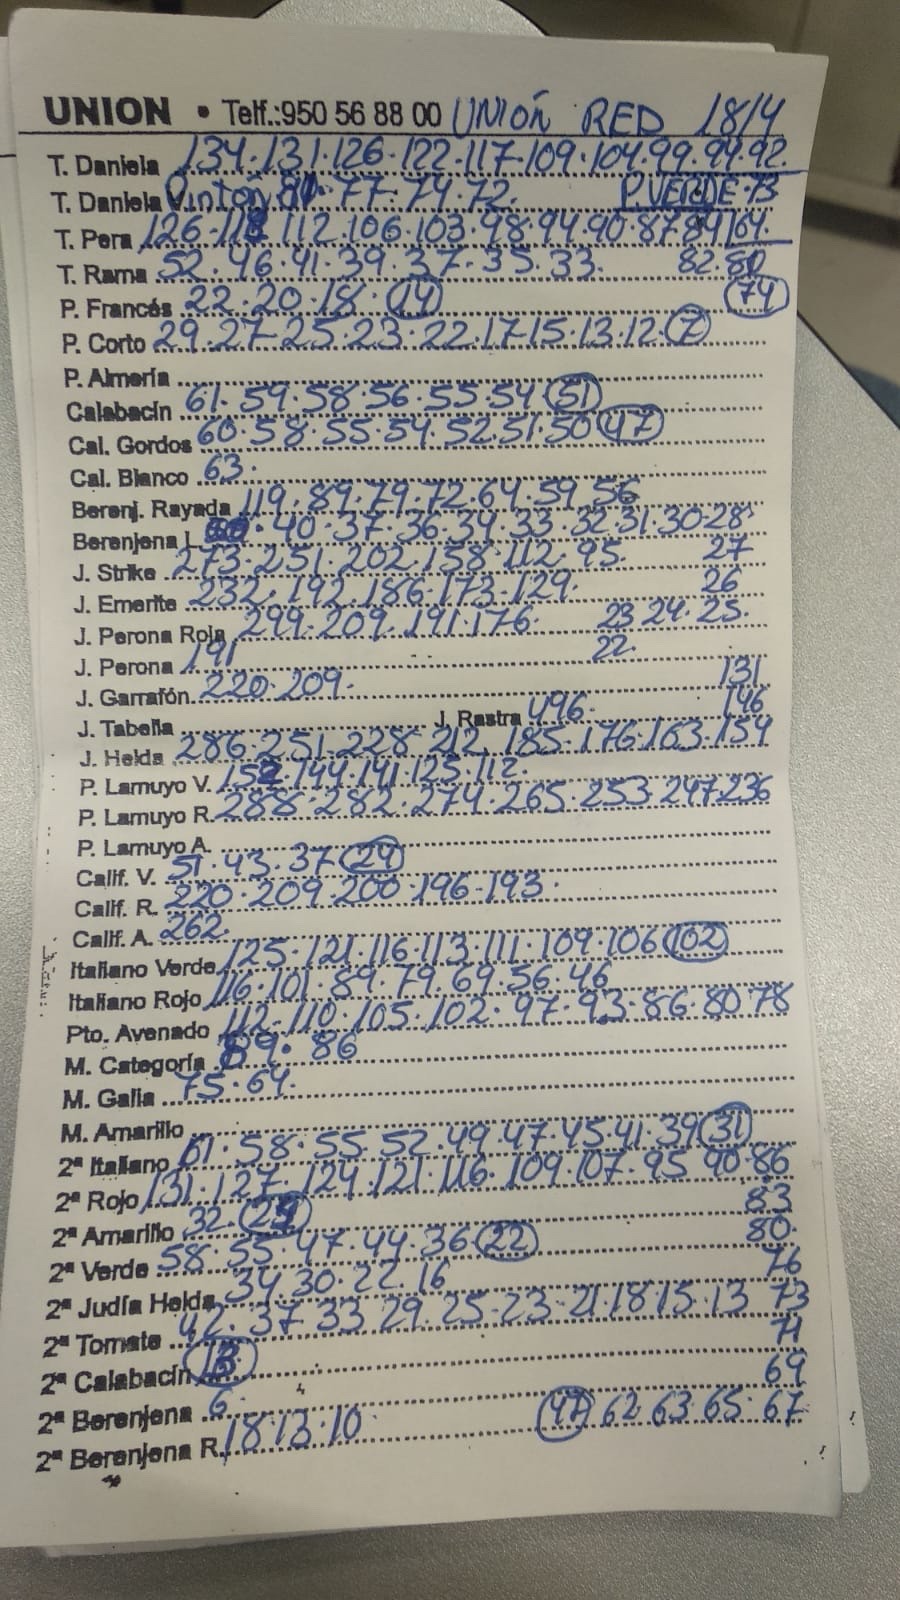 UNION • Telf.:950 56 88 00 UNIÓN RED 18/4
T. Daniela 134·131·126·122·117·109·104·99·94·92.
T. Daniela Pintón 81·77·74·72. P.VERDE·73
T. Pera 126-118 112·106·103·98·94·90·87 84 64.
T. Rama 52·46·41·39·37·35·33. 82·80
P. Francés 22·20·18·14 74
P. Corto 29·27·25·23·22·17·15·13·12·7
P. Almería
Calabacín 61·59·58·56·55·54 51
Cal. Gordos 60·58·55·54·52·51·50 47
Cal. Blanco 63·
Berenj. Rayada 119·89·79·72·64·59·56
Berenjena L 40·37·36·34·33·32·31·30·28·
J. Strike 273·251·202·158·112·95. 27
J. Emerite 232·192·186·173·129· 26
J. Perona Roja 299·209·191·176· 23 24·25·
J. Perona 191 22·
J. Garrafón 220·209· 131
J. Tabella J. Rastra 496· 146
J. Helda 286·251·228·212·185·176·163·154
P. Lamuyo V. 152·144·141·125·112·
P. Lamuyo R. 288·282·274·265·253·247·236
P. Lamuyo A.
Calif. V. 51·43·37 24
Calif. R. 220·209·200·196-193·
Calif. A. 262·
Italiano Verde 125·121·116·113·111·109·106 102
Italiano Rojo 116·101·89·79·69·56·46
Pto. Avenado 112-110·105·102·97·93·86·80 78
M. Categoría 89· 86
M. Galia 75·64·
M. Amarillo
2ª Italiano 61·58·55·52·49·47·45·41·39 31
2ª Rojo 131·127·124·121·116·109·107·95 90·86
2ª Amarillo 32· 83
2ª Verde 58·55·47·44·36 22 80·
2ª Judía Helda 34·30·22·16 76
2ª Tomate 42·37·33 29·25·23·21·18·15·13 73
2ª Calabacín 13 71
2ª Berenjena 6· 69
2ª Berenjena R. 18·13·10 47 62·63·65·67